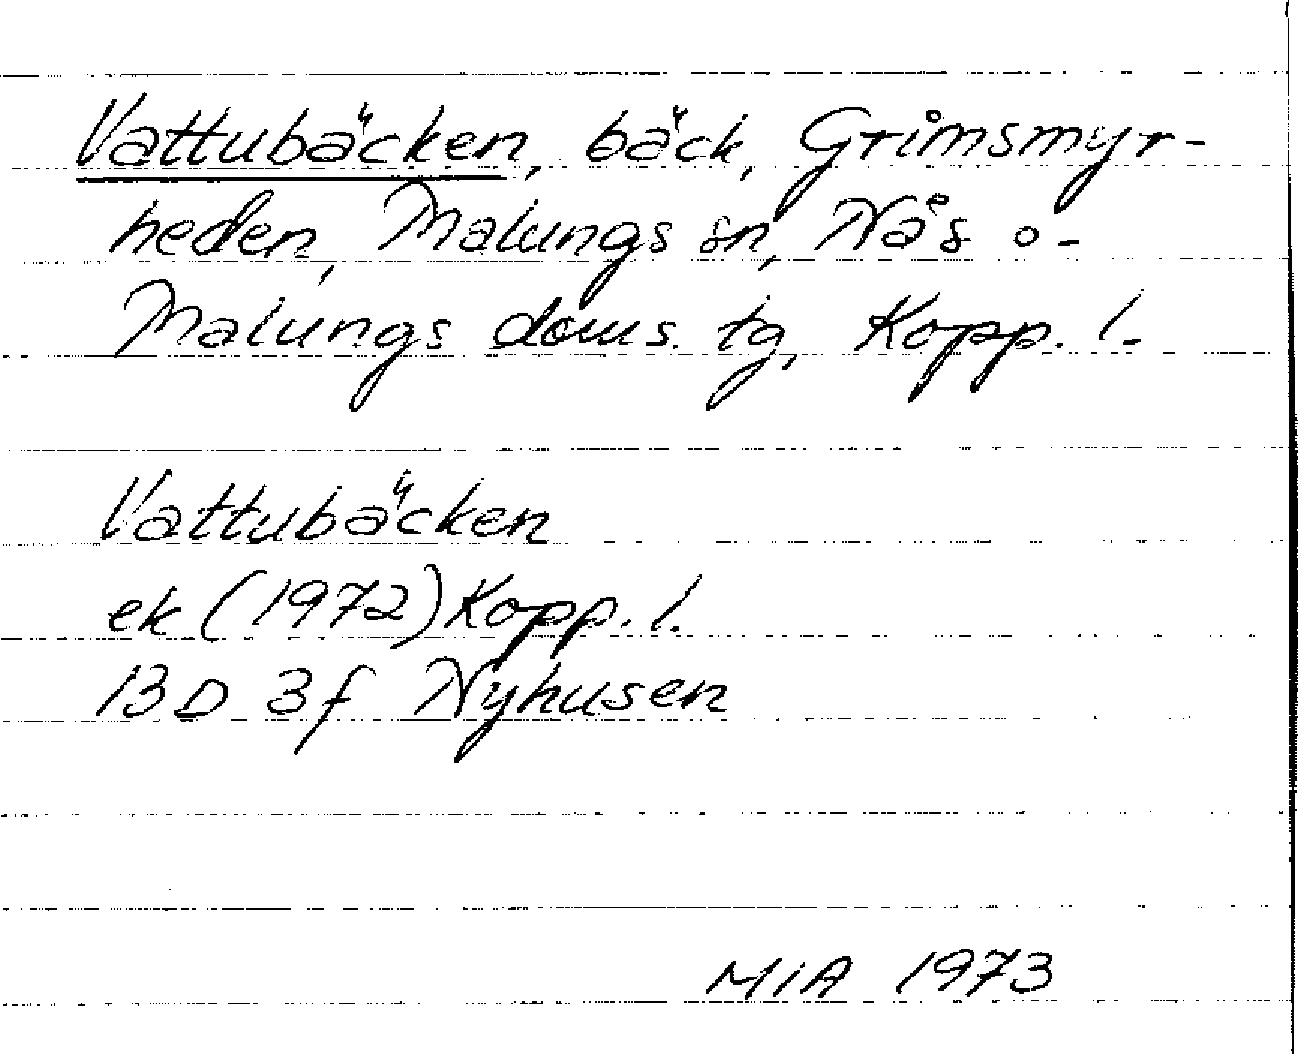 Vattubäcken, bäck, Grimsmyr-
heden, Malungs sn, Nås o.
Malungs doms. tg, Kopp. l.
Vattubäcken
ek (1972) Kopp. l.
13D 3f Nyhusen
MIA 1973